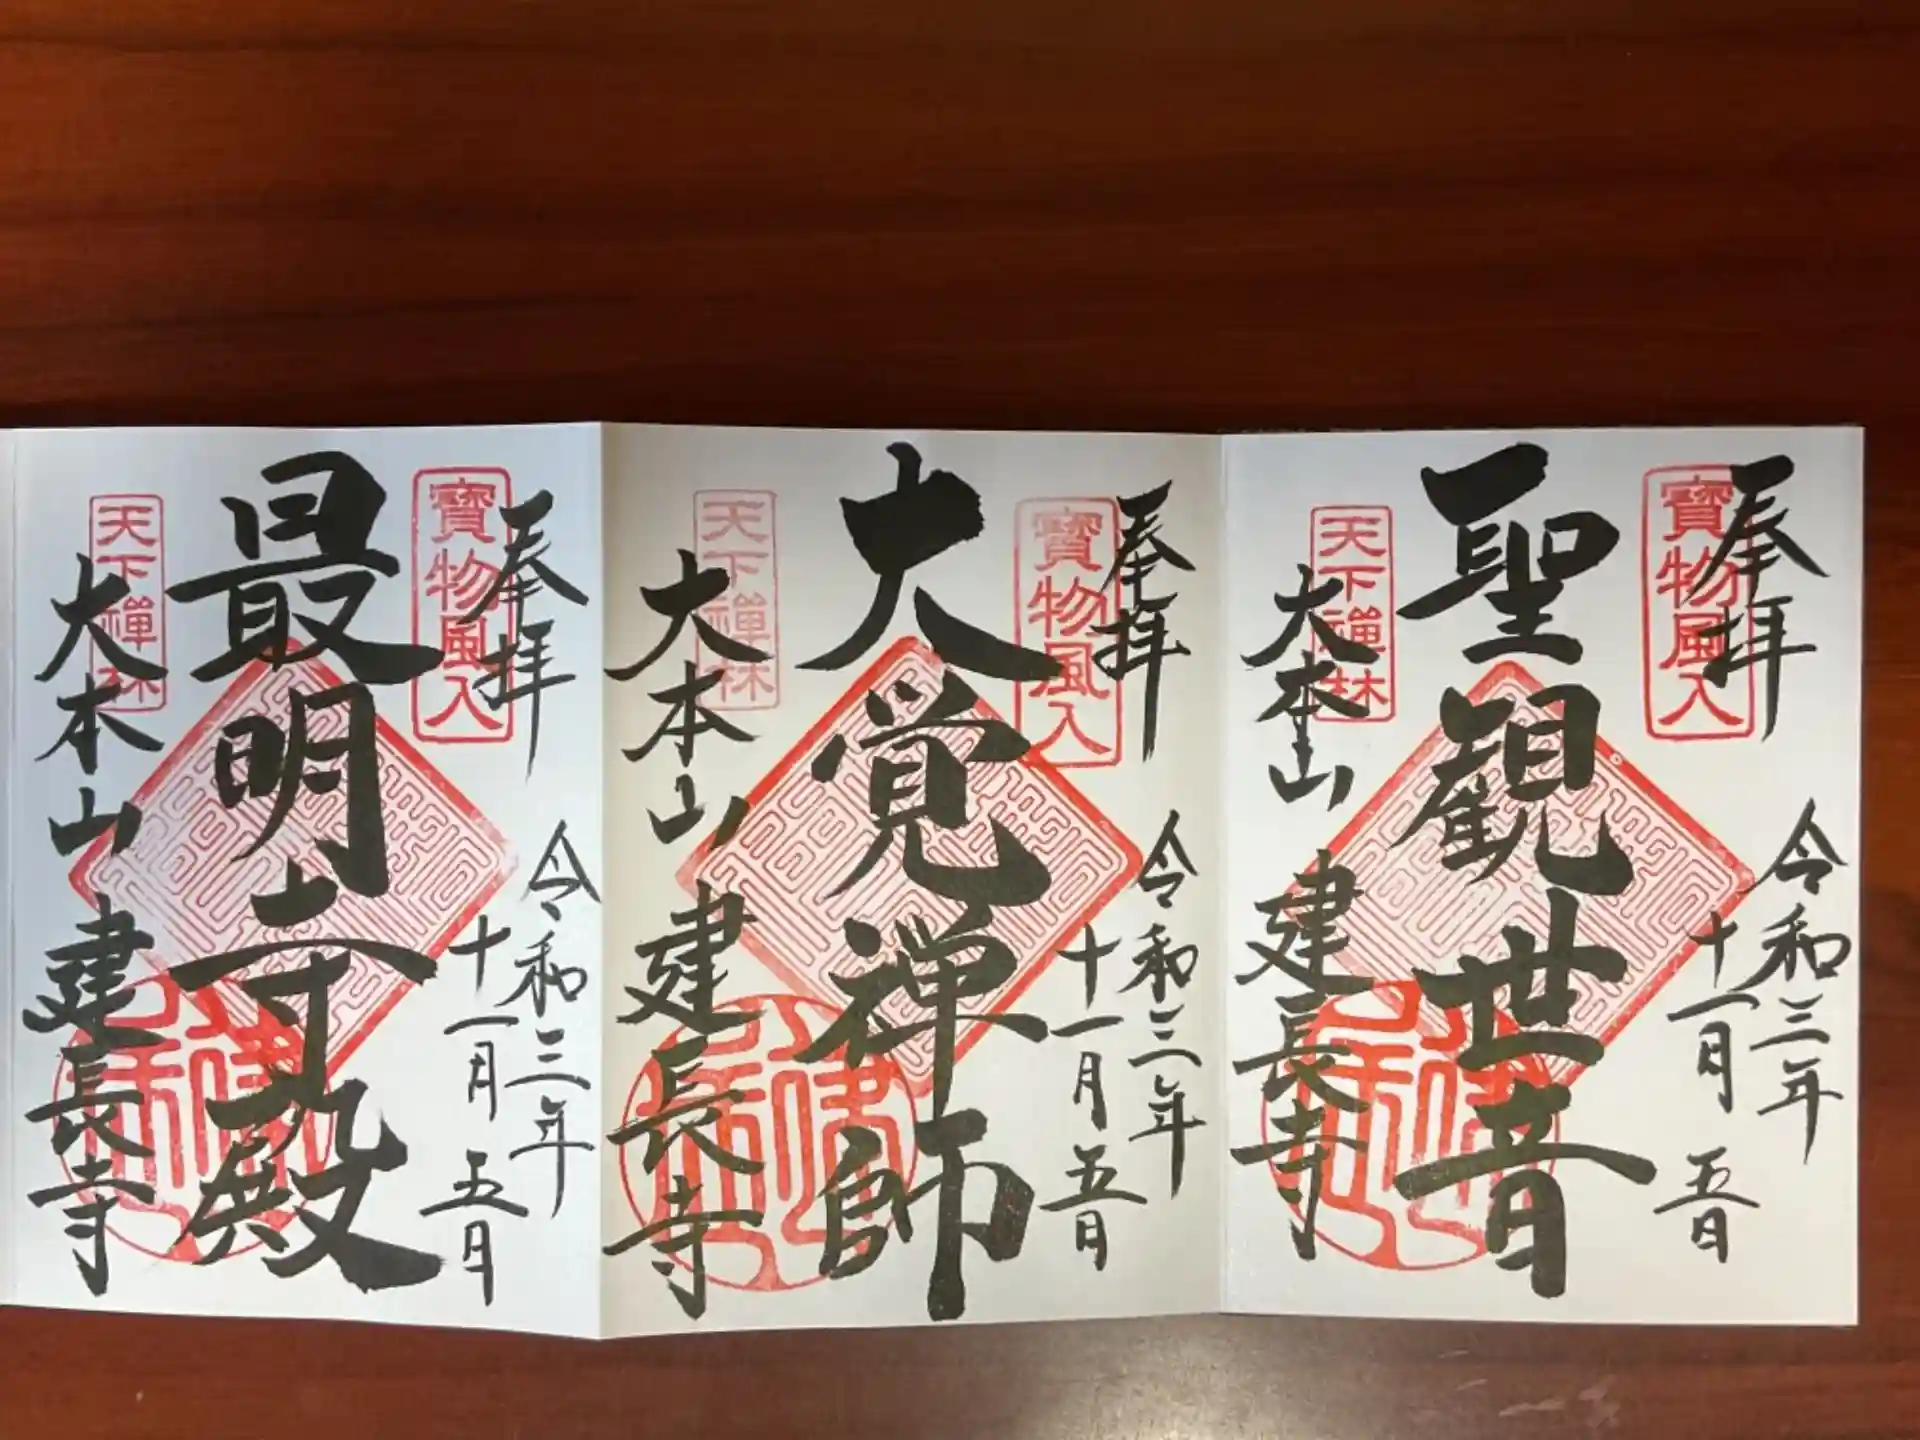 奉拝
寶物風入
令和三年
十一月五日
聖観世音
天下禅林
大本山
建長寺
奉拝
寶物風入
令和三年
十一月五日
大覚禅師
天下禅林
大本山
建長寺
奉拝
寶物風入
令和三年
十一月五日
最明寺殿
天下禅林
大本山
建長寺